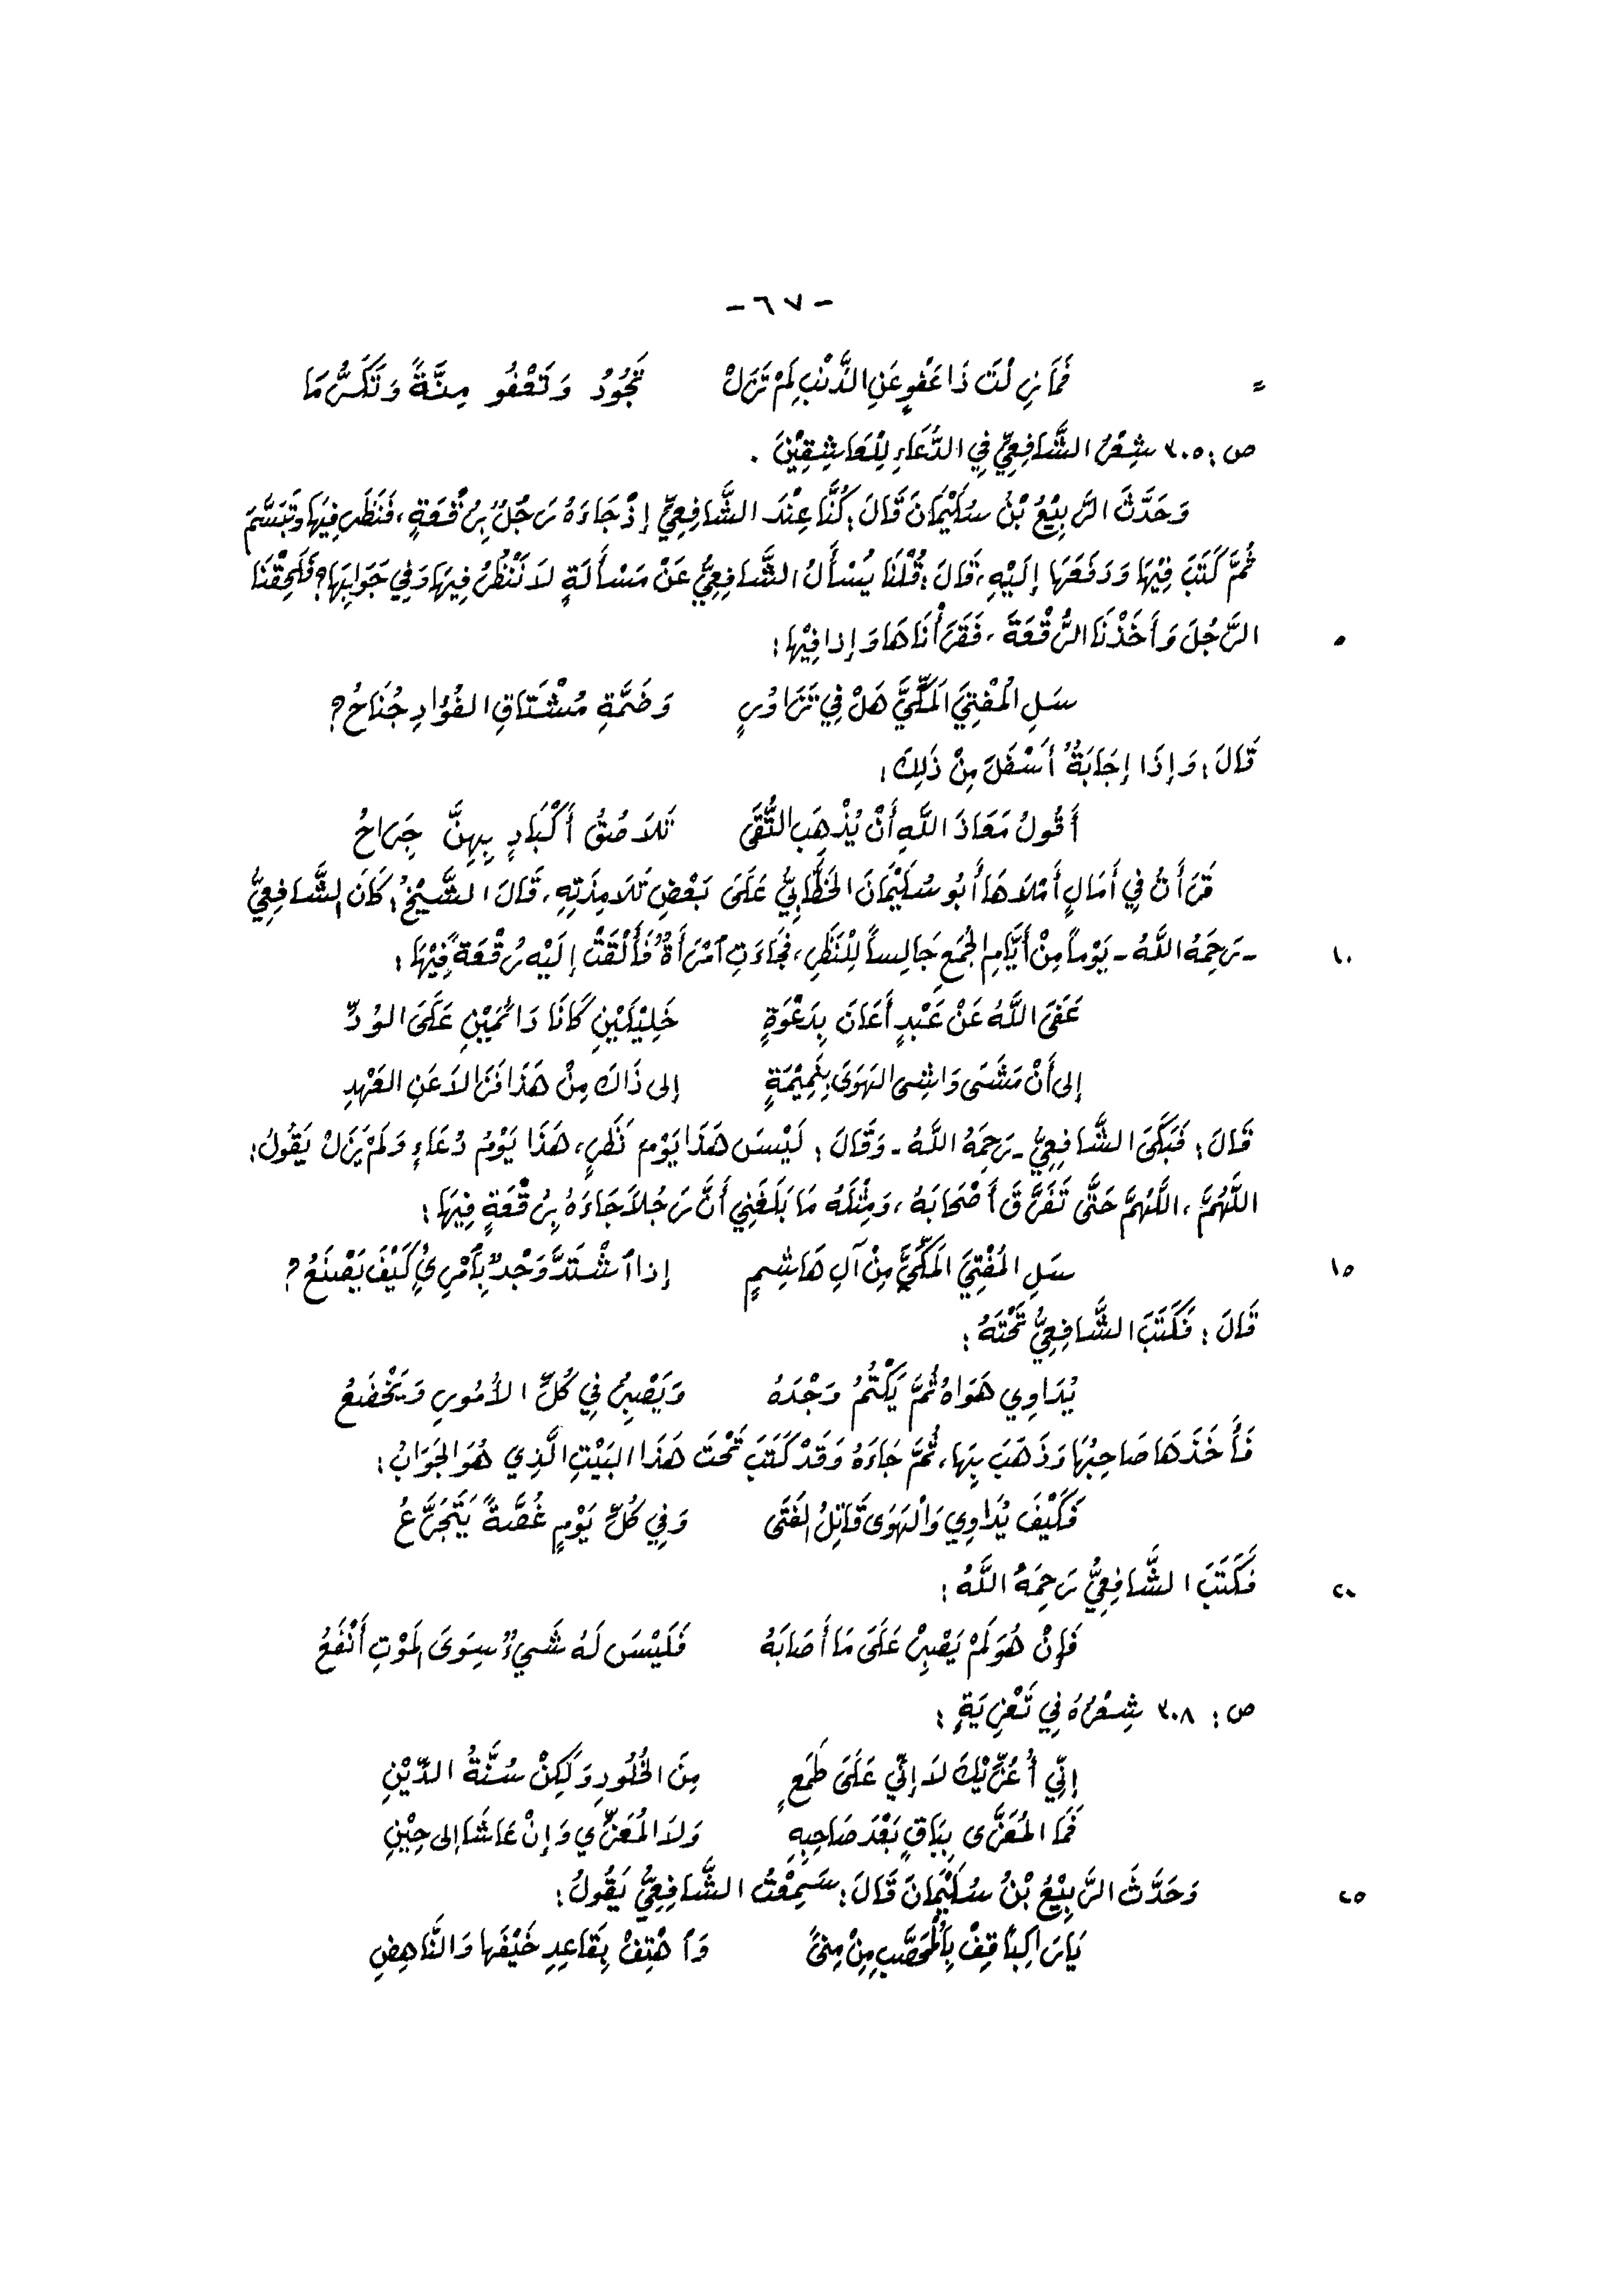 - ٦٧ -
= فَمَا زِلْتَ ذَا عَفْوٍ عَنِ الذَّنْبِ لَمْ تَزَلْ تَجُودُ وَتَعْفُو مِنَّةً وَتَكَرُّمَا
ص : ٣٠٥ شِعْرُ الشَّافِعِيِّ فِي الدُّعَاءِ لِلْعَاشِقِيْنَ .
وَحَدَّثَ الرَّبِيْعُ بْنُ سُلَيْمَانَ قَالَ : كُنَّا عِنْدَ الشَّافِعِيِّ إِذْ جَاءَهُ رَجُلٌ بِرُقْعَةٍ ، فَنَظَرَ فِيهَا وَتَبَسَّمَ
ثُمَّ كَتَبَ فِيْهَا وَدَفَعَهَا إِلَيْهِ ، قَالَ : قُلْنَا يُسْأَلُ الشَّافِعِيُّ عَنْ مَسْأَلَةٍ لاَ نَنْظُرُ فِيهَا وَفِي جَوَابِهَا ؟ فَلَحِقْنَا
٥ الرَّجُلَ وَأَخَذْنَا الرُّقْعَةَ ، فَقَرَأْنَاهَا وَإِذا فِيْهَا :
سَلِ الْمُفْتِيَ المَكِّيَّ هَلْ فِي تَزَاوُرٍ وَضَمَّةِ مُشْتَاقِ الفُؤَادِ جُنَاحُ ؟
قَالَ : وَإِذَا إِجَابَةٌ أَسْفَلَ مِنْ ذَلِكَ :
أَقُولُ مَعَاذَ اللَّهِ أَنْ يُذْهِبَ التُّقَى تَلاَصُقُ أَكْبَادٍ بِهِنَّ جِرَاحُ
قَرَأْتُ فِي أَمَالٍ أَمْلاَهَا أَبُو سُلَيْمَانَ الخَطَّابِيُّ عَلَى بَعْضِ تَلاَمِذَتِهِ ، قَالَ الشَّيْخُ : كَانَ الشَّافِعِيُّ
١٠ - رَحِمَهُ اللَّهُ - يَوْماً مِنْ أَيَّامِ الجُمَعِ جَالِساً لِلْنَظَرِ ، فَجَاءَتِ ٱمْرَأَةٌ فَأَلْقَتْ إِلَيْهِ رُقْعَةً فِيْهَا :
عَفَى اللَّهُ عَنْ عَبْدٍ أَعَانَ بِدَعْوَةٍ خَلِيْلَيْنِ كَانَا دَائمَيْنِ عَلَى الوُدِّ
إِلى أَنْ مَشَى وَاشِى الهَوَى بِنَمِيْمَةٍ إِلى ذَاكَ مِنْ هَذَا فَزَالاَ عَنِ العَهْدِ
قَالَ : فَبَكَى الشَّافِعِيُّ - رَحِمَهُ اللَّهُ - وَقَالَ : لَيْسَ هَذَا يَوْمَ نَظَرٍ ، هَذَا يَوْمُ دُعَاءٍ وَلَمْ يَزَلْ يَقُولُ :
اللَّهُمَّ ، اللَّهُمَّ حَتَّى تَفَرَّقَ أَصْحَابَهُ ، وَمِثْلَهُ مَا بَلَغَنِي أَنَّ رَجُلاً جَاءَهُ بِرُقْعَةٍ فِيهَا :
١٥ سَلِ المُفْتِيَ المَكِّيَّ مِنْ آلِ هَاشِمٍ إِذا ٱشْتَدَّ وَجْدٌ بِٱمْرِىءٍ كَيْفَ يَصْنَعُ ؟
قَالَ : فَكَتَبَ الشَّافِعِيُّ تَحْتَهُ :
يُدَاوِي هَوَاهُ ثُمَّ يَكْتُمُ وَجْدَهُ وَيَصْبِرُ فِي كُلِّ الأُمُورِ وَيَخْضَعُ
فَأَخَذَهَا صَاحِبُهَا وَذَهَبَ بِهَا ، ثُمَّ جَاءَهُ وَقَدْ كَتَبَ تَحْتَ هَذَا البَيْتِ الَّذِي هُوَ الجَوَابُ :
فَكَيْفَ يُدَاوِي وَالْهَوَى قَاتِلُ الفَتَى وَفِي كُلِّ يَوْمٍ غُصَّةً يَتَجَرَّعُ
٢٠ فَكَتَبَ الشَّافِعِيُّ رَحِمَهُ اللَّهُ :
فَإِنْ هُوَ لَمْ يَصْبِرْ عَلَى مَا أَصَابَهُ فَلَيْسَ لَهُ شَيءٌ سِوَى المَوْتِ أَنْفَعُ
ص : ٣٠٨ شِعْرُهُ فِي تَعْزِيَةٍ :
إِنِّي أُعَزِّيْكَ لاَ إِنِّي عَلَى طَمَعٍ مِنَ الخُلُودِ وَلَكِنْ سُنَّةُ الدِّيْنِ
فَمَا المُعَزَّى بِبَاقٍ بَعْدَ صَاحِبِهِ وَلاَ المُعَزِّي وَإِنْ عَاشَا إِلى حِيْنِ
٢٥ وَحَدَّثَ الرَّبِيْعُ بْنُ سُلَيْمَانَ قَالَ : سَمِعْتُ الشَّافِعِيُّ يَقُولُ :
يَا رَاكِباً قِفْ بِٱلْمُحَصَّبِ مِنْ مِنىً وَٱهْتِفْ بِقَاعِدِ خَيْفَهَا وَالنَّاهِضِ